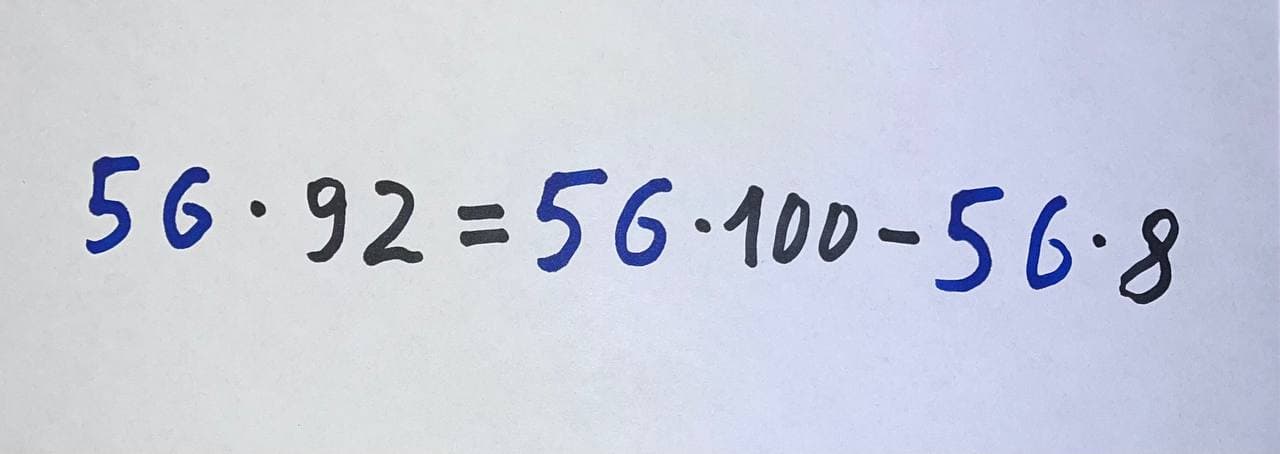 56·92=56·100-56·8